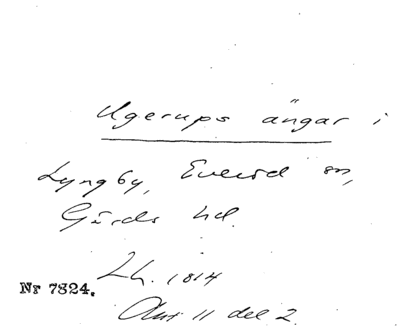 Ugerups ängar i
Lyngby, Everöd sn,
Gärds hd.
Lh. 1814
Nr 7824.
Akt 11 del 2